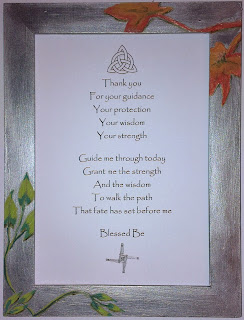 Thank you
For your guidance
Your protection
Your wisdom
Your strength
Guide me through today
Grant me the strength
And the wisdom
To walk the path
That fate has set before me
Blessed Be